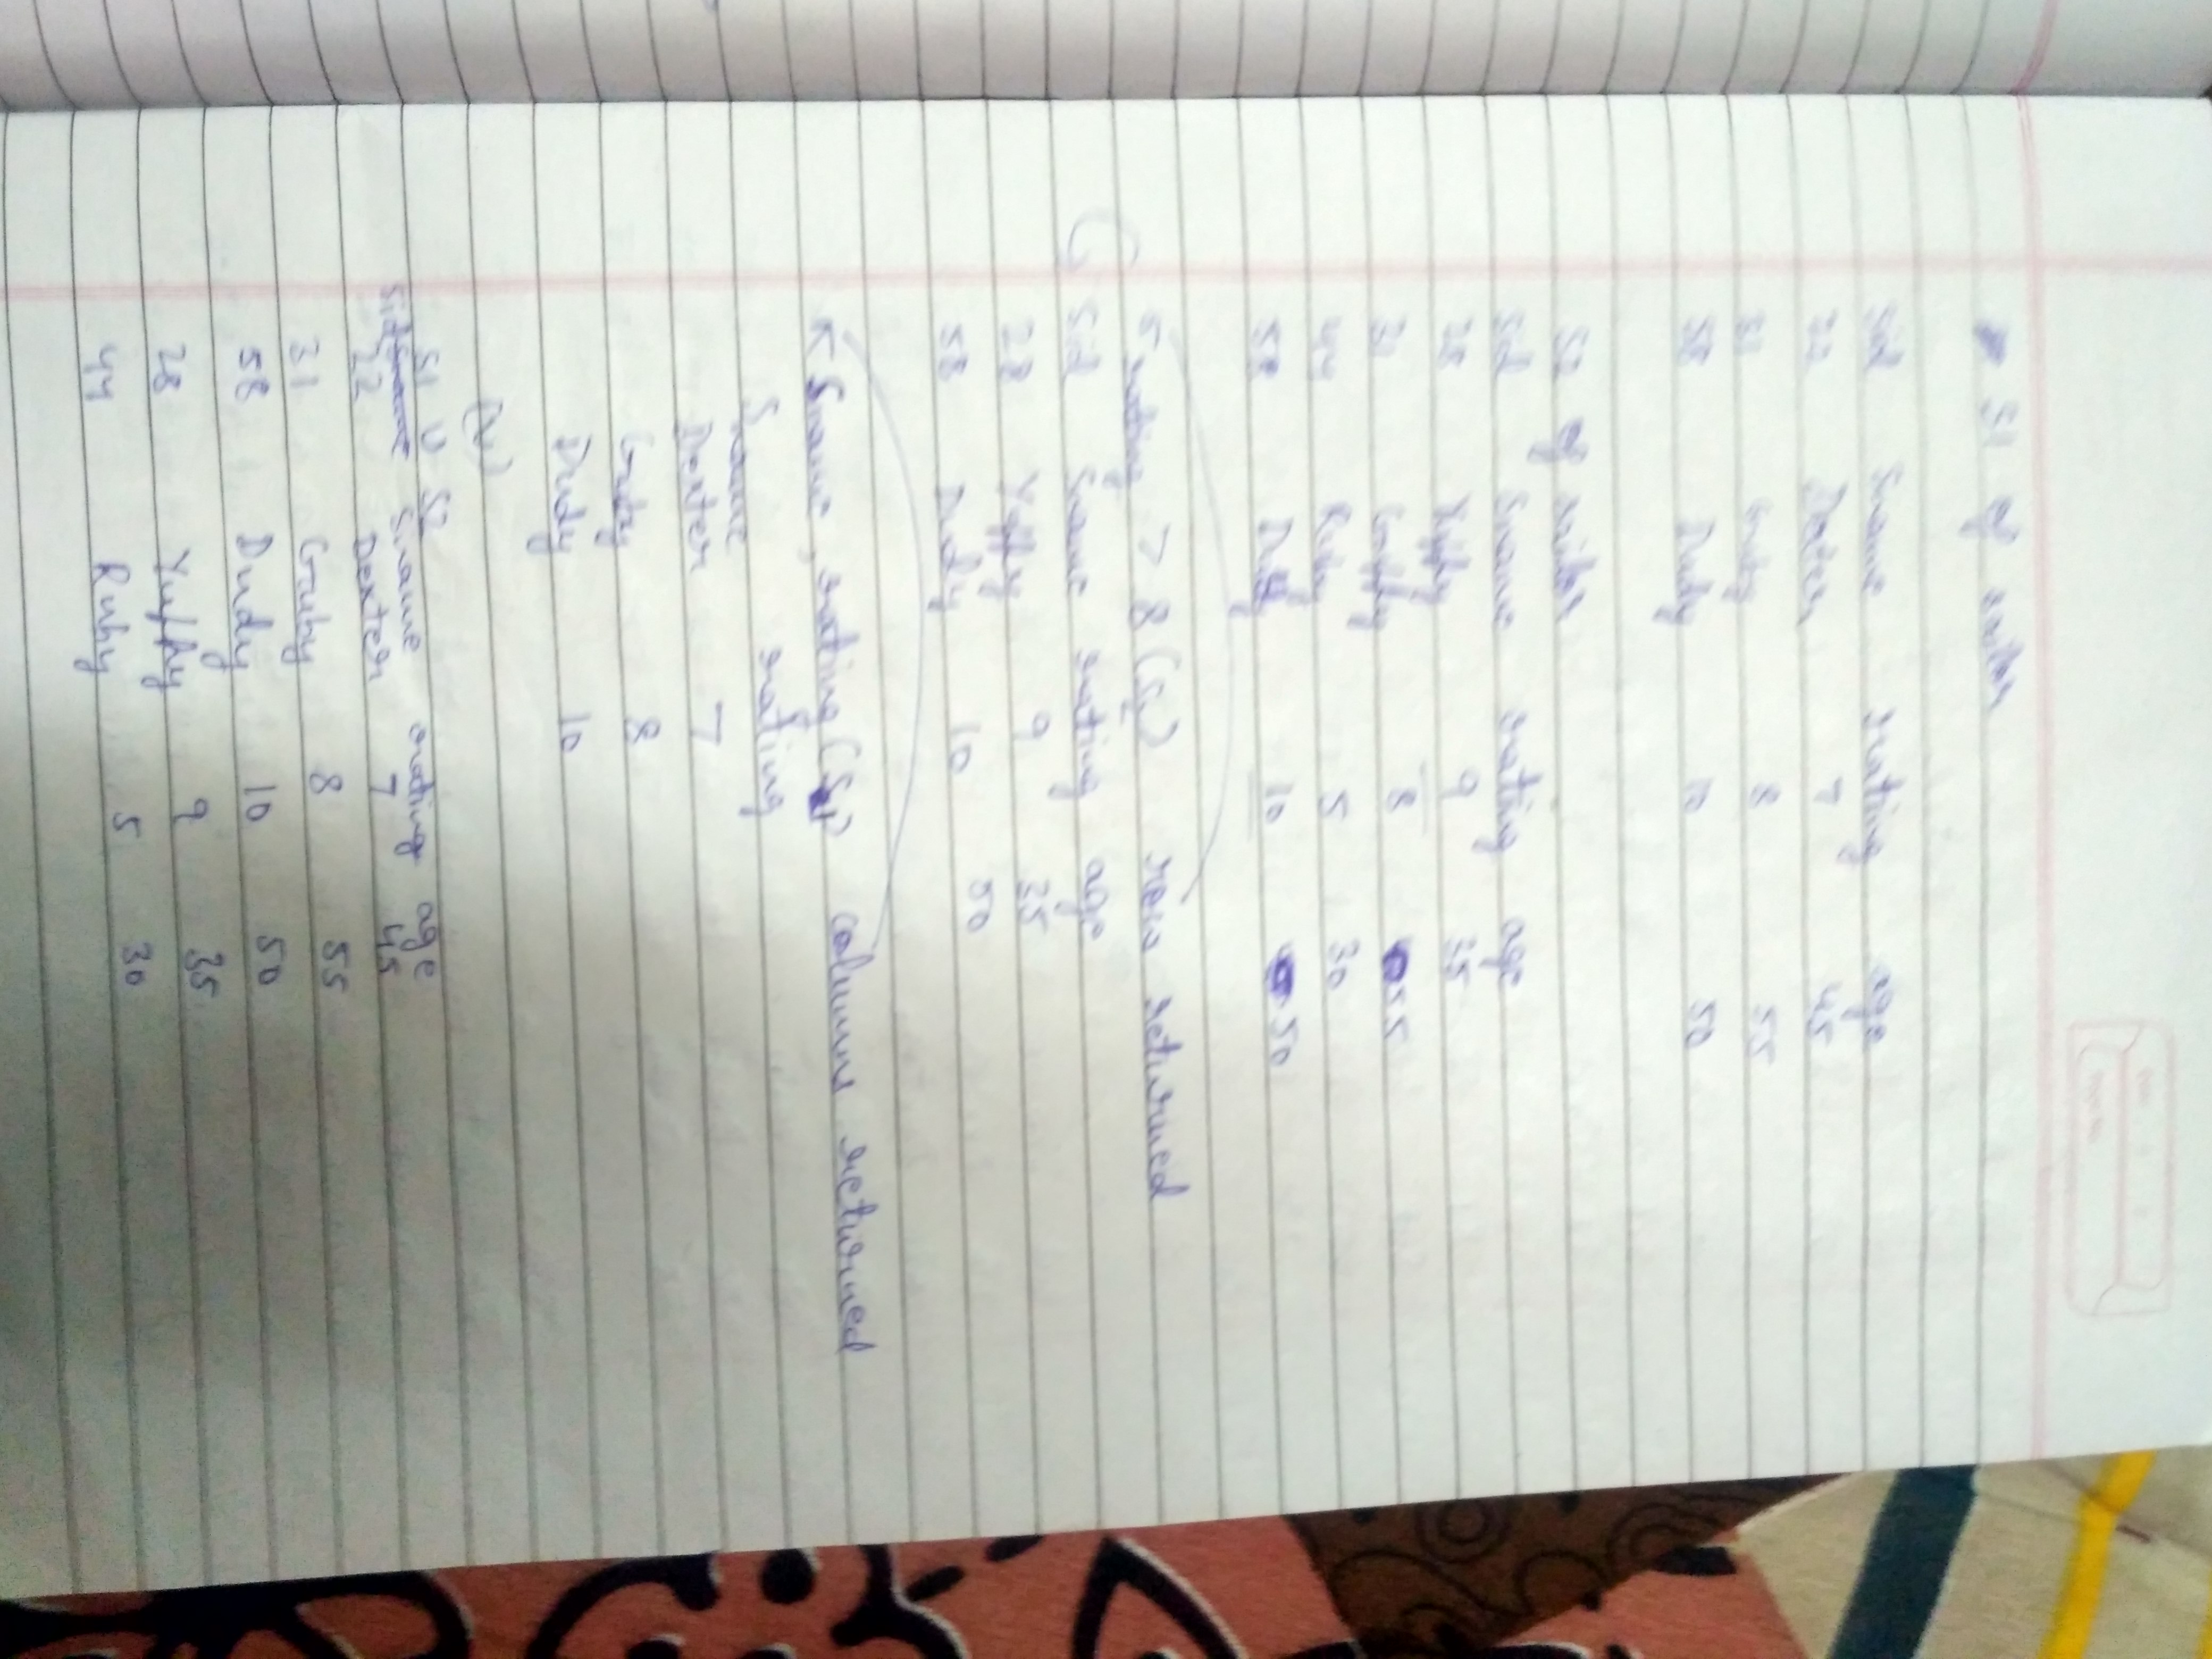 S1 of sailor
Sid Sname rating age
22 Dexter 7 45
31 Gruby 8 55
58 Dudy 10 50
S2 of sailor
Sid Sname rating age
28 Yuffy 9 35
31 8 55
44 Ruby 5 30
58 Dudy 10 50
rating > 8 (S2) rows returned
Sid Sname rating age
28 Yuffy 9 35
58 Dudy 10 50
Sname, rating (S1) columns returned
Sname rating
Dexter 7
Gruby 8
Dudy 10
(U)
S1 U S2
Sid Sname rating age
22 Dexter 7 45
31 Gruby 8 55
58 Dudy 10 50
28 Yuffy 9 35
44 Ruby 5 30